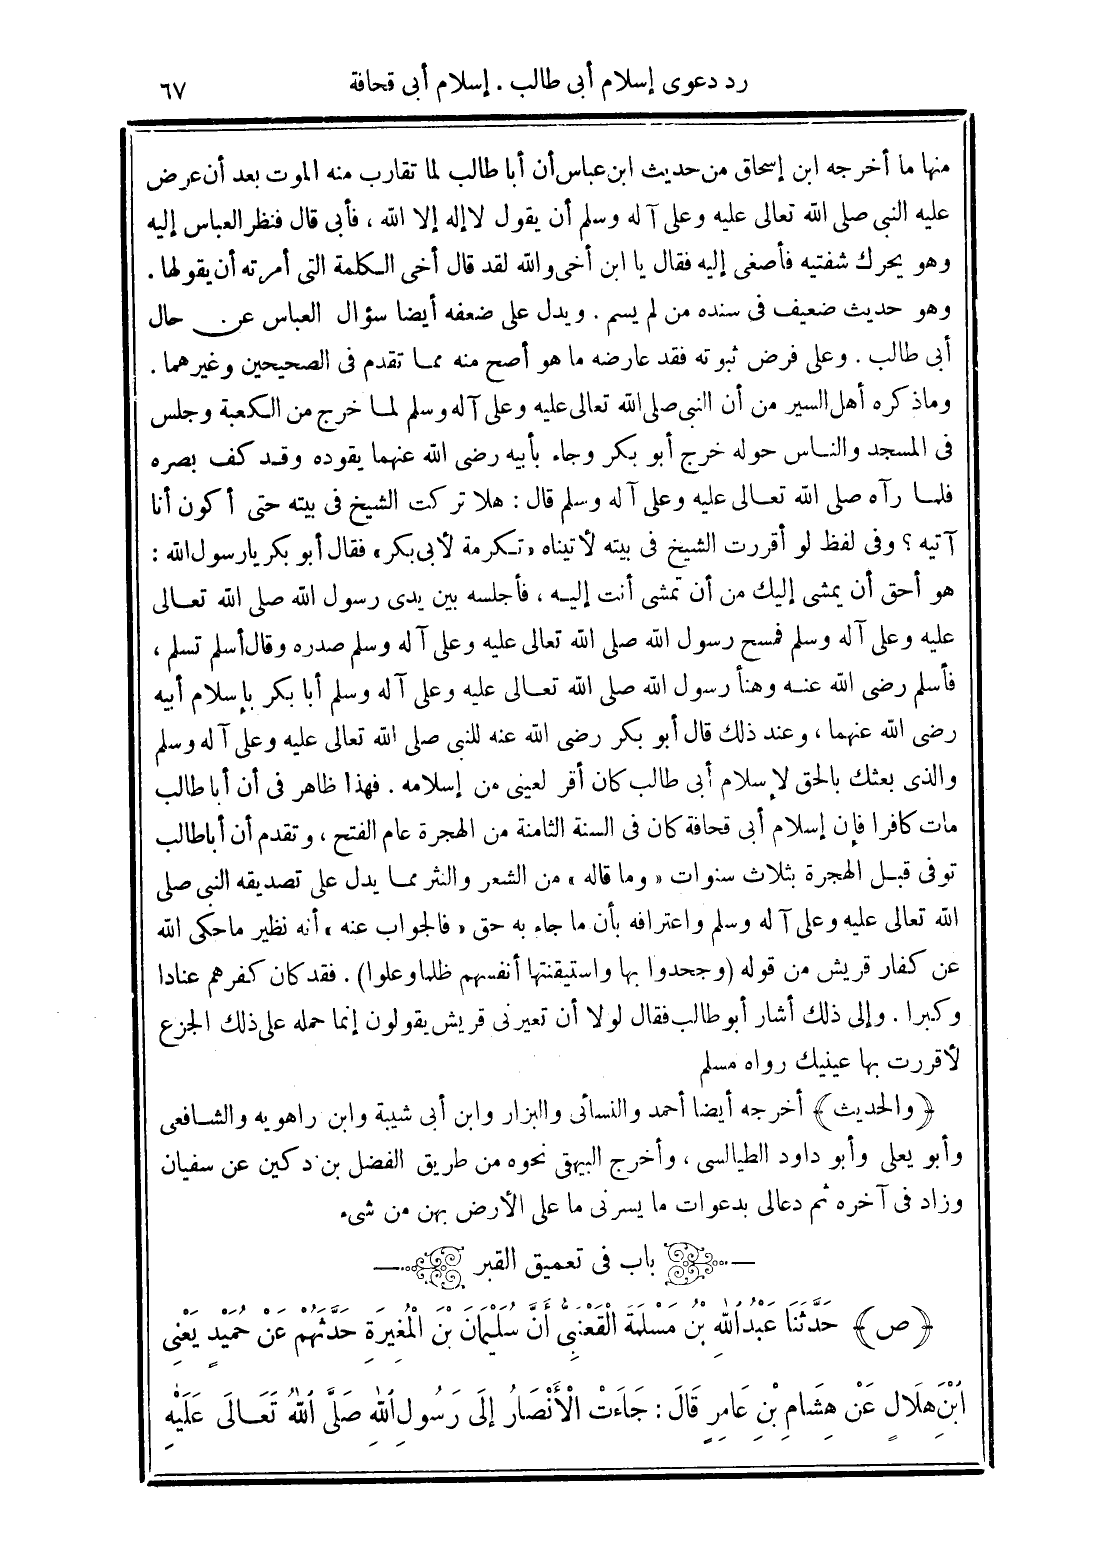 رد دعوى إسلام أبى طالب . إسلام أبى قحافة ٦٧
منها ما أخرجه ابن إسحاق من حديث ابن عباس أن أبا طالب لما تقارب منه الموت بعد أن عرض
عليه النبى صلى الله تعالى عليه وعلى آله وسلم أن يقول لا إله إلا الله ، فأبى قال فنظر العباس إليه
وهو يحرك شفتيه فأصغى إليه فقال يا ابن أخى والله لقد قال أخى الكلمة التى أمرته أن يقولها .
وهو حديث ضعيف فى سنده من لم يسم . ويدل على ضعفه أيضا سؤال العباس عن حال
أبى طالب . وعلى فرض ثبوته فقد عارضه ما هو أصح منه مما تقدم فى الصحيحين وغيرهما .
وماذكره أهل السير من أن النبى صلى الله تعالى عليه وعلى آله وسلم لما خرج من الكعبة وجلس
فى المسجد والناس حوله خرج أبو بكر وجاء بأبيه رضى الله عنهما يقوده وقد كف بصره
فلما رآه صلى الله تعالى عليه وعلى آله وسلم قال : هلا تركت الشيخ فى بيته حتى أكون أنا
آتيه ؟ وفى لفظ لو أقررت الشيخ فى بيته لأتيناه «تكرمة لأبى بكر» فقال أبو بكر يارسول الله :
هو أحق أن يمشى إليك من أن تمشى أنت إليه ، فأجلسه بين يدى رسول الله صلى الله تعالى
عليه وعلى آله وسلم فمسح رسول الله صلى الله تعالى عليه وعلى آله وسلم صدره وقال أسلم تسلم ،
فأسلم رضى الله عنه وهنأ رسول الله صلى الله تعالى عليه وعلى آله وسلم أبا بكر بإسلام أبيه
رضى الله عنهما ، وعند ذلك قال أبو بكر رضى الله عنه للنبى صلى الله تعالى عليه وعلى آله وسلم
والذى بعثك بالحق لإسلام أبى طالب كان أقر لعينى من إسلامه . فهذا ظاهر فى أن أبا طالب
مات كافرا فإن إسلام أبى قحافة كان فى السنة الثامنة من الهجرة عام الفتح ، وتقدم أن أباطالب
توفى قبل الهجرة بثلاث سنوات «وما قاله» من الشعر والنثر مما يدل على تصديقه النبى صلى
الله تعالى عليه وعلى آله وسلم واعترافه بأن ما جاء به حق «فالجواب عنه» أنه نظير ماحكى الله
عن كفار قريش من قوله (وجحدوا بها واستيقنتها أنفسهم ظلما وعلوا) . فقد كان كفرهم عنادا
وكبرا . وإلى ذلك أشار أبو طالب فقال لولا أن تعيرنى قريش يقولون إنما حمله على ذلك الجزع
لأقررت بها عينيك رواه مسلم
﴿والحديث﴾ أخرجه أيضا أحمد والنسائى والبزار وابن أبى شيبة وابن راهويه والشافعى
وأبو يعلى وأبو داود الطيالسى ، وأخرج البيهقى نحوه من طريق الفضل بن دكين عن سفيان
وزاد فى آخره ثم دعالى بدعوات ما يسرنى ما على الأرض بهن من شىء
باب فى تعميق القبر
﴿ص﴾ حَدَّثَنَا عَبْدُ اللهِ بْنُ مَسْلَمَةَ الْقَعْنَبِىُّ أَنَّ سُلَيْمَانَ بْنَ الْمُغِيرَةِ حَدَّثَهُمْ عَنْ حُمَيْدٍ يَعْنِى
ابْنَ هِلَالٍ عَنْ هِشَامِ بْنِ عَامِرٍ قَالَ : جَاءَتْ الْأَنْصَارُ إِلَى رَسُولِ اللهِ صَلَّى اللهُ تَعَالَى عَلَيْهِ